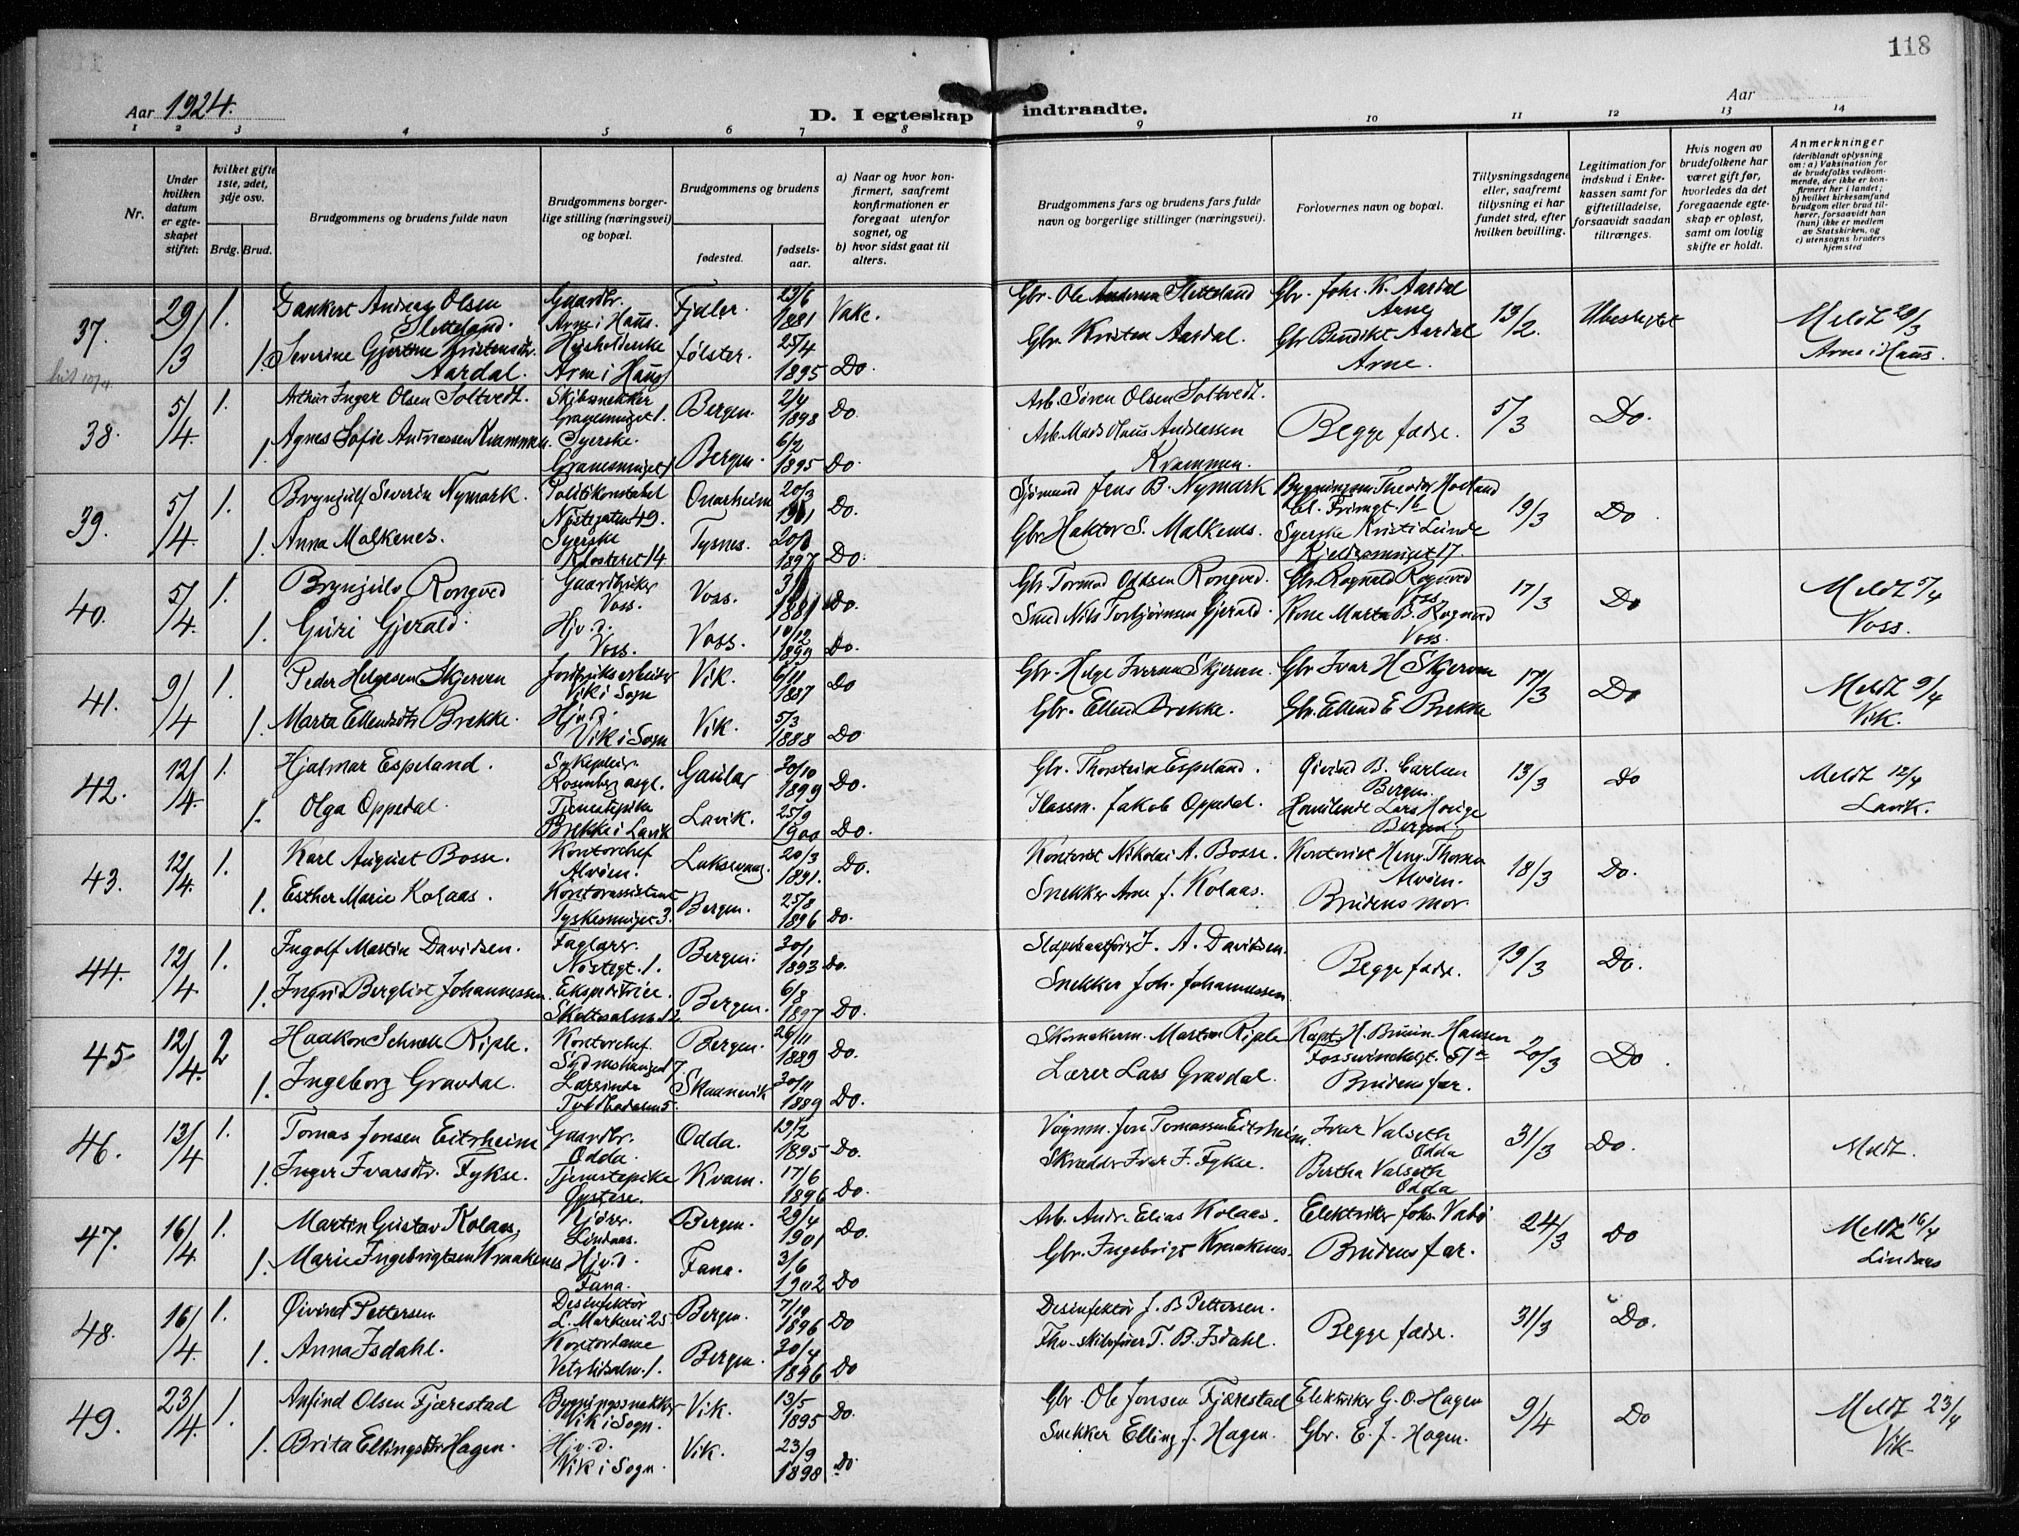 118
Aar 1924.
D. I egteskap indtraadte.
Aar
1 2 3 4 5 6 7 8 9 10 11 12 13 14
Nr.
Under hvilken datum er egteskapet stiftet:
hvilket gifte 1ste, 2det, 3dje osv.
Brdg. Brud.
Brudgommens og brudens fulde navn
Brudgommens borgerlige stilling (næringsvei) og bopæl.
Brudgommens og brudens
fødested.
fødselsaar.
a) Naar og hvor konfirmert, saafremt konfirmationen er foregaat utenfor sognet, og
b) hvor sidst gaat til alters.
Brudgommens fars og brudens fars fulde navn og borgerlige stillinger (næringsvei).
Forlovernes navn og bopæl.
Tillysningsdagene eller, saafremt tillysning ei har fundet sted, efter hvilken bevilling.
Legitimation for indskud i Enkekassen samt for giftetilladelse, forsaavidt saadan tiltrænges.
Hvis nogen av brudefolkene har været gift før, hvorledes da det foregaaende egteskap er opløst, samt om lovlig skifte er holdt.
Anmerkninger
(deriblandt oplysning om: a) Vaksination for de brudefolks vedkommende, der ikke er konfirmert her i landet; b) hvilket kirkesamfund brudgom eller brud tilhører, forsaavidt han (hun) ikke er medlem av Statskirken, og c) utensogns bruders hjemsted
37. 29/3 1. Andreas Olsen Sletteland. Gaardbr. Arne i Haus. Fjaler. 23/6 1881 Vake. Gbr. Ole Andersen Sletteland Gbr. Johs. K. Aardal Arne 13/2. Ubeslegtet Meldt 29/3 Arne i Haus.
1. Severine Gjertine Kristensdtr. Aardal. Arne i Haus 25/4 1895 Do. Gbr. Kristen Aardal. Gbr Bendikt Aardal Arne.
38. 5/4 1. Arthur Inger Olsen Soltvedt. Skibsnekker Bergen. 2/4 1898 Do. Arb. Søren Olsen Soltvedt. Begge fædre. 5/3 Do.
1. Agnes Sofie Andreassen Kvammen. Syerske. Bergen. 6/2 1895 Do. Arb. Mads Olaus Andreassen Kvammen.
39. 5/4 1. Brynjulf Severin Nymark. Politikonstabel Nøstegaten 49. Onarheim 20/3 Do. Sjømand Jens B. Nymark 19/3 Do
1. Anna Malkenes. Syerske Klosteret 14 Tysnes. 1897 Do. Gbr Haktor S. Malkenes. Syerske Kristi Lunde
40. 5/4 1. Brynjulv Rongved Gaardbruker Voss. Voss. 1881 Do. Gbr. Tormod Oddsen Rongved. Gbr. Ragnald Rogned Voss 17/3 Do Meldt 5/4 Voss.
1. Guri Gjerald. Hjv. d. Voss. Voss. 10/12 1899 Do. Smed Nils Torbjørnsen Gjerald. Kone Marta B. Rognald Voss.
41. 9/4 1. Peder Helgesen Skjerven Vik i Sogn Vik. 6/11 1887 Do Gbr. Helge Iversen Skjerven. Gbr Ivar H Skjerven 17/3 Do Meldt 9/4 Vik.
1. Marta Ellendsdtr Brekke. Hjv. d. Vik i Sogn Vik. 5/3 1888 Do Gbr. Ellend Brekke. Gbr. Ellend E Brekke
42. 12/4. 1. Hjalmar Espeland. Sykepleier. Gaular 20/10 1899 Do. Gbr. Thorstein Espeland. Øivind B. Carlsen Bergen 13/3 Do Meldt 12/4 Lavik.
1. Olga Oppedal. Tjenestepike Brekke i Lavik Lavik. 25/9 1900 Do. Jakob Oppedal. Bergen.
43. 12/4. 1. Karl August Bosse. Kontorchef Alvøen. Laksevaag. 20/3 1891. Do. Kontorist Nikolai A. Bosse. Kontorist Henry Thorsen Alvøen. 18/3 Do.
1. Esther Marie Kolaas. Kontorassistent Bergen. 25/8 1896 Do. Snekker Arne J. Kolaas. Brudens mor.
44. 12/4 1. Ingolf Martin Davidsen. Faglærer Nøstegt. 1. Bergen. 30/1 1893 Do. J. A. Davidsen. Begge fædre. 19/3 Do.
1. Ingrid Bergliot Johannessen Ekspeditrice. Bergen. 6/8 1897 Do. Snekker Joh. Johannessen
45 12/4. 2 Haakon Schnell Riple. Kontorchef Bergen. 26/11 1889 Do. Skomakerm. Martin Riple Kapt. H. Bruun-Hansen 20/3 Do.
1. Ingeborg Gravdal. Lærerinde Skaanevik 30/11 1889 Do. Lærer Lars Gravdal. Brudens far.
46. 13/4 1. Tomas Jonsen Eitrheim Gaardbr. Odda. Odda. 19/2 1895 Do. Vognm. Jon Tomassen Eitrheim. Ivar Valseth Odda 31/3 Do. Meldt.
1. Inger Ivarsdtr. Fykse. Tjenestepike Øystese. Kvam. 17/6 1896 Do. Skrædder Ivar J. Fykse. Bertha Valseth Odda
47. 16/4 1. Martin Gustav Kolaas. Lindaas. Bergen. 29/4 1901 Do. Arb. Andr. Elias Kolaas. Elektriker Johs. Vabø 24/3 Do Meldt 16/4 Lindaas
1. Marie Ingebrigtsen Kraakenes Hjv. d. Fana. Fana. 3/6 1902 Do Gbr. Ingebrigt Kraakenes. Brudens far.
48. 16/4. 1. Øivind Pettersen Desinfektør L. Markevei 25 Bergen. 7/10 1896 Do Desinfektør J. B Pettersen. Begge fædre. 31/3 Do.
1. Anna Isdahl. Kontordame Vetrlidsalm. 1. Bergen. 20/4 1896 Do T. B. Isdahl.
49. 23/4. 1. Anfind Olsen Fjærestad Bygningssnekker Vik i Sogn. Vik. 13/5 1895 Do. Gbr. Ole Jonsen Fjærestad Elektriker G. O. Hagen 9/4 Do Meldt 23/4 Vik
1. Brita Ellingsdtr Hagen. Hjv. d. Vik i Sogn. Vik. 23/9 1898 Do Snekker Elling J. Hagen. Gbr. E. J. Hagen.